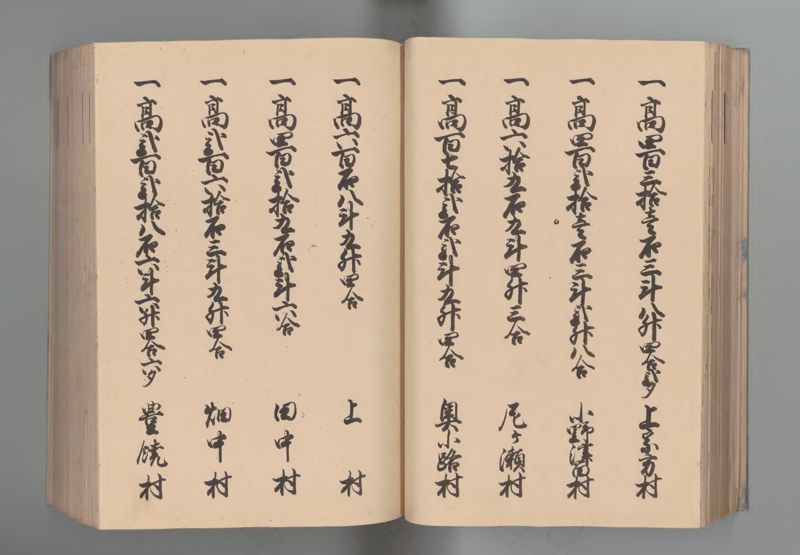 一高四百三拾壱石三斗八舛四合弐夕 上宗方村
一高四百弐拾壱石三斗弐舛八合 小野津留村
一高六拾五石九斗四舛三合 尼ヶ瀬村
一高百七拾弐石弐斗九舛四合 奥小路村
一高六百石八斗九舛四合 上村
一高四百弐拾九石弐斗六合 田中村
一高弐百八拾石三斗九舛四合 畑中村
一高弐百弐拾八石六斗六舛四合六夕 豊饒村